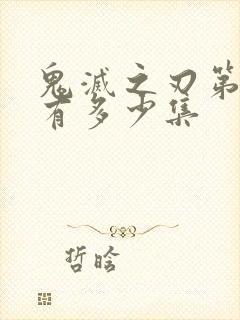 鬼滅之刃第
有多少集
哲晗